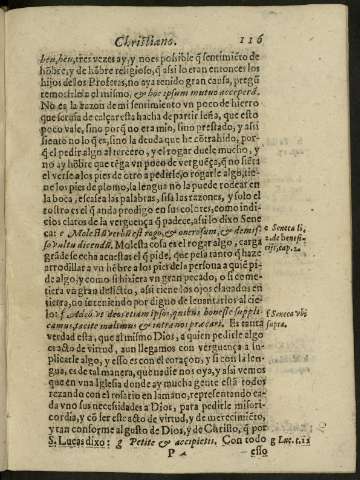 Christiano. 116
hen, hen, tres vezes ay, y no es posible q̃ sentimiẽto de
hõbre, y de hõbre religioso, q̃ asi lo eran entonces los
hijos de los Profetas, no aya tenido gran causa, pregũ
temoselo a el mismo, & hoc ipsum mutuo acceperã.
No es la razon de mi sentimiento vn poco de hierro
que seruia de calçar esta hacha de partir leña, que esto
poco vale, sino porq̃ no era mio, sino prestado, y asi
siento no lo q̃ es, sino la deuda que he cõtrahido, por-
q̃ el pedir algo al tercero, y el rogar duele mucho, y
no ay hõbre que tẽga vn poco de verguẽça, q̃ no siẽta
el verse a los pies de otro a pedirle, o rogarle algo, tie-
ne los pies de plomo, la lengua no la puede rodear en
la boca, escasea las palabras, sisa las razones, y solo el
rostro es el q̃ anda prodigo en sus colores, como indi-
cios claros de la verguença q̃ padece, asi lo dixo Sene
ca: e Molestũ verbũ est rogo, & onerosum, & demis-
so vultu dicendũ. Molesta cosa es el rogar algo, carga
grãde se echa acuestas el q̃ pide, que pesa tanto q̃ haze
arrodillar a vn hõbre a los pies de la persona a quiẽ pi-
de algo, y como si huuiera vn gran pecado, o si come-
tiera vn gran delicto, asi tiene los ojos clauados en
tierra, no teniendo por digno de leuantarlos al cie-
lo: f Adeò vt deos etiam ipsos, quibus honeste suppli-
camus, tacite malimus & intra nos præcari. Es tanta
verdad esta, que al mismo Dios, a quien pedirle algo
es acto de virtud, aun llegamos con verguença a su-
plicarle algo, y esso es con el coraçon, y si con la len-
gua, es de tal manera, que nadie nos oya, y asi vemos
que en vna Iglesia donde ay mucha gente està todos
rezando con el rosario en la mano, representando ca-
da vno sus necesidades a Dios, para pedirle miseri-
cordia, y cõ ser esto acto de virtud, y de merecimiẽto,
y tan conforme al gusto de Dios, y de Christo, q̃ por
S. Lucas dixo: g Petite & accipietis. Con todo
P 4 esso
e Seneca li.
2. de benefi-
cijs, cap. 2.
f Seneca vbi
supra.
g Luc. c. 11